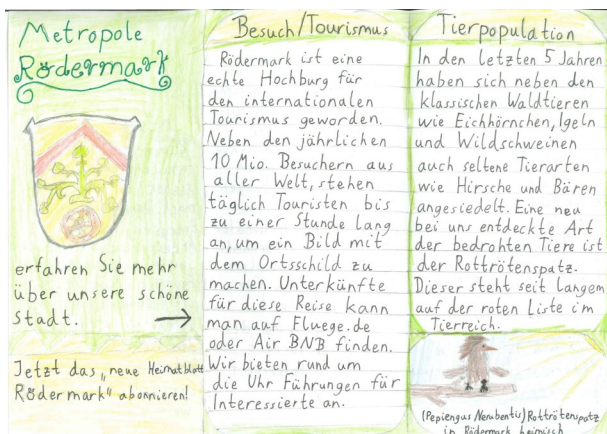 Metropole
Rödermark
erfahren Sie mehr
über unsere schöne
Stadt.
Jetzt das „neue Heimatblatt
Rödermark" abonnieren!
Besuch/Tourismus
Rödermark ist eine
echte Hochburg für
den internationalen
Tourismus geworden.
Neben den jährlichen
10 Mio. Besuchern aus
aller Welt, stehen
täglich Touristen bis
zu einer Stunde lang
an, um ein Bild mit
dem Ortsschild zu
machen. Unterkünfte
für diese Reise kann
man auf Fluege.de
oder Air BNB finden.
Wir bieten rund um
die Uhr Führungen für
Interessierte an.
Tierpopulation
In den Letzten 5 Jahren
haben sich neben den
klassischen Waldtieren
wie Eichhörnchen, Igeln
und Wildschweinen
auch seltene Tierarten
wie Hirsche und Bären
angesiedelt. Eine neu
bei uns entdeckte Art
der bedrohten Tiere ist
der Rottrötenspatz.
Dieser steht seit langem
auf der roten Liste im
Tierreich.
Rottrötenspatz
in Rödermark heimisch